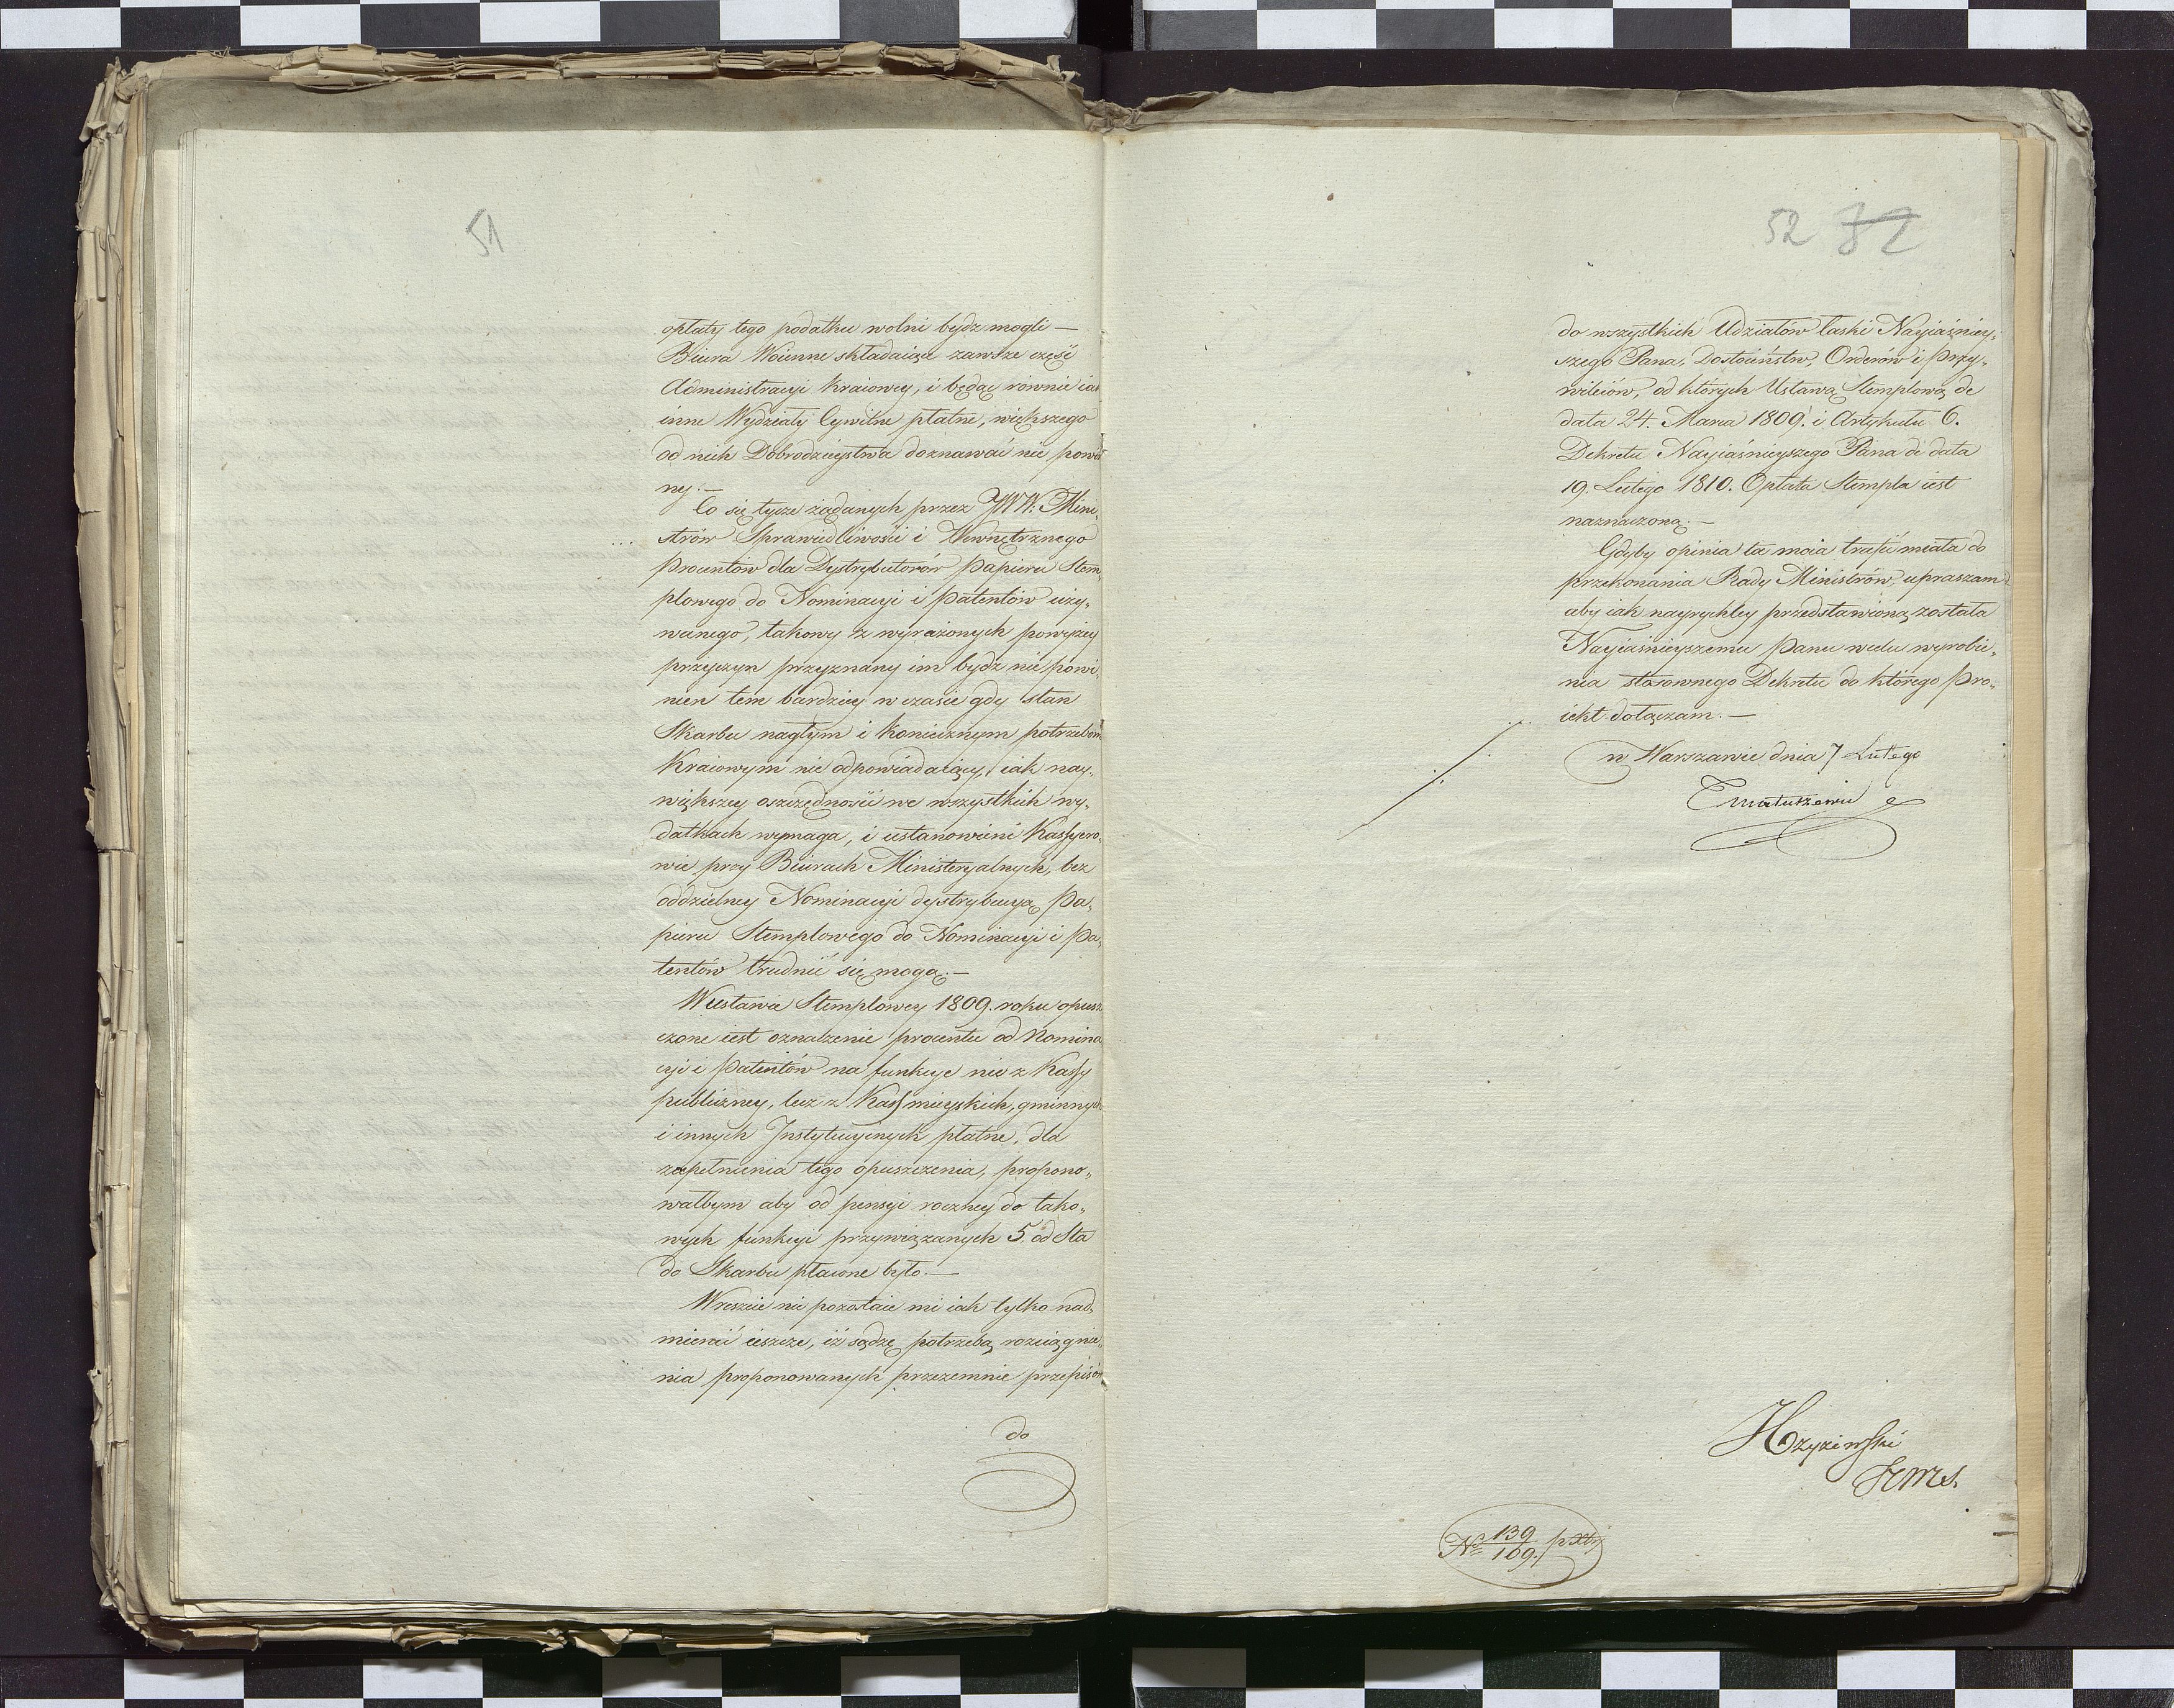 51
opłaty tego podatku wolni bydz mogli —
Biura Woienne składaiąc zawsze część
Administracyi Kraiowey, i będąc równie iak
inne Wydziały Cywilne płatne, większego
od nich Dobrodzieystwa doznawać nie powin
ny. —
Co się tycze żądanych przez JWW. Mini,
strów Sprawiedliwości i Wewnętrznego
Procentów dla Dystrybutorów Papieru Stem,
plowego do Nominacyi i Patentów uży,
wanego, takowy z wyrażonych powyżey
przyczyn przyznany im bydź nie powi,
nien tem bardziey w czasie gdy stan
Skarbu nagłym i koniecznym potrzebom
Kraiowym nie odpowiadaiący, iak nay,
większey oszczędności we wszystkich wy,
datkach wymaga, i ustanowieni Kassyero,
wie przy Biurach Ministeryalnych, bez
oddzielney Nominacyi dystrybucyą Pa,
pieru Stemplowego do Nominacyi i Pa,
tentów trudnić się mogą. —
W ustawie Stemplowey 1809. roku opusz
czone iest oznaczenie procentu od Nomina
cyi i Patentów na funkcye nie z Kassy
publiczney, lecz z Kass mieyskich, gminnych
i innych Instytucyinych płatne, dla
zapełnienia tego opuszczenia, propono,
wałbym aby od pensyi roczney do tako,
wych funkcyi przywiązanych 5. od Sta
do Skarbu płacone było. —
Wreszcie nie pozostaie mi iak tylko nad,
mienić ieszcze, iż sądzę potrzebą rozciągnie,
nia proponowanych przezemnie przepisów
do
52 82
do wszystkich Udziałów łaski Nayiaśniey,
szego Pana, Dostoieństw, Orderów i Przy,
wileiów, od których Ustawą Stemplową de
data 24. Marca 1809. i Artykułu 6.
Dekretu Nayiaśnieyszego Pana de data
19. Lutego 1810. Opłata Stempla iest
naznaczoną. —
Gdyby opinia ta moia trafić miała do
przekonania Rady Ministrów, upraszam
aby iak nayrychley przedstawioną została
Nayiaśnieyszemu Panu wcelu wyrobie,
nia stosownego Dekretu do którego Pro,
iekt dołączam. —
w Warszawie dnia 7 Lutego
T Matuszewic
No 139
169.